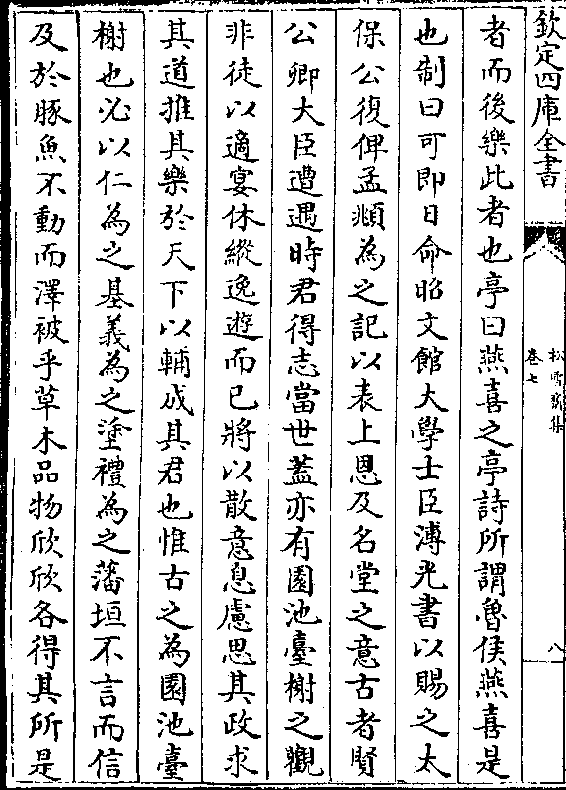 欽定四庫全書
松雪齋集
卷七
八
者而後樂此者也亭曰燕喜之亭詩所謂魯侯燕喜是
也制曰可即日命昭文館大學士臣溥光書以賜之太
保公復俾孟頫為之記以表上恩及名堂之意古者賢
公卿大臣遭遇時君得志當世蓋亦有園池臺榭之觀
非徒以適宴休縱逸遊而已將以散意息慮思其政求
其道推其樂於天下以輔成其君也惟古之為園池臺
榭也必以仁為之基義為之塗禮為之藩垣不言而信
及於豚魚不動而澤被乎草木品物欣欣各得其所是